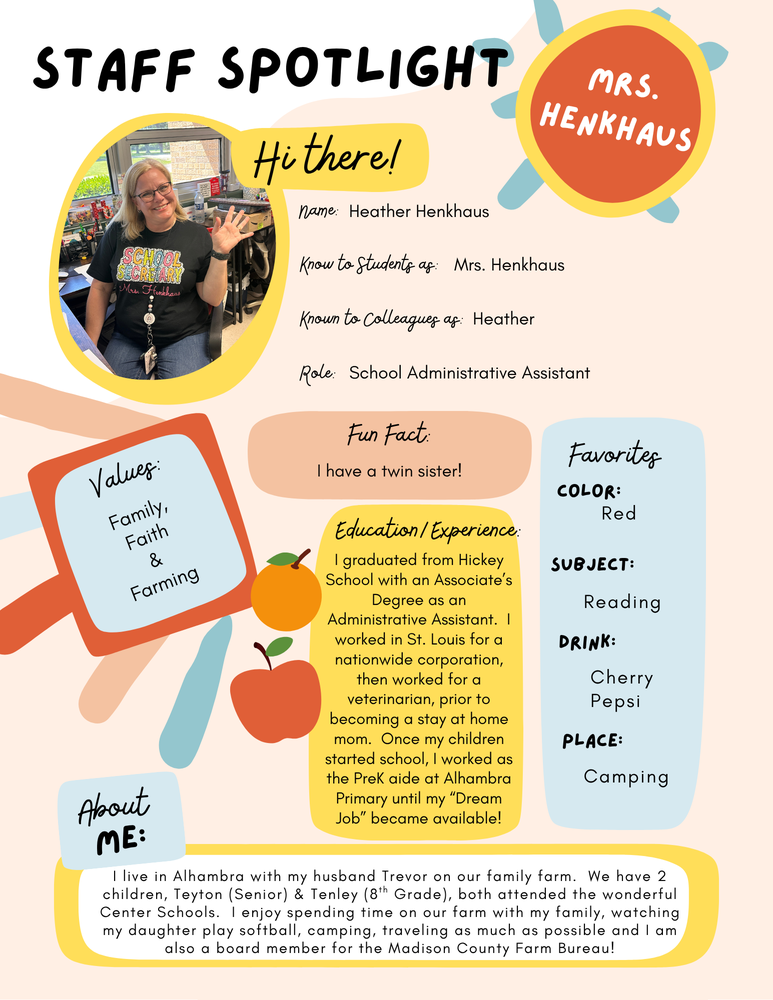 STAFF SPOTLIGHT
MRS.
HENKHAUS
Hi there!
SCHOOL
SECRETARY
Mrs. Henkhaus
Name: Heather Henkhaus
Know to Students as: Mrs. Henkhaus
Known to Colleagues as: Heather
Role: School Administrative Assistant
Fun Fact:
I have a twin sister!
Values:
Family,
Faith
&
Farming
Education/Experience:
I graduated from Hickey
School with an Associate's
Degree as an
Administrative Assistant. I
worked in St. Louis for a
nationwide corporation,
then worked for a
veterinarian, prior to
becoming a stay at home
mom. Once my children
started school, I worked as
the PreK aide at Alhambra
Primary until my “Dream
Job” became available!
Favorites
COLOR:
Red
SUBJECT:
Reading
DRINK:
Cherry
Pepsi
PLACE:
Camping
About
ME:
I live in Alhambra with my husband Trevor on our family farm. We have 2
children, Teyton (Senior) & Tenley (8th Grade), both attended the wonderful
Center Schools. I enjoy spending time on our farm with my family, watching
my daughter play softball, camping, traveling as much as possible and I am
also a board member for the Madison County Farm Bureau!